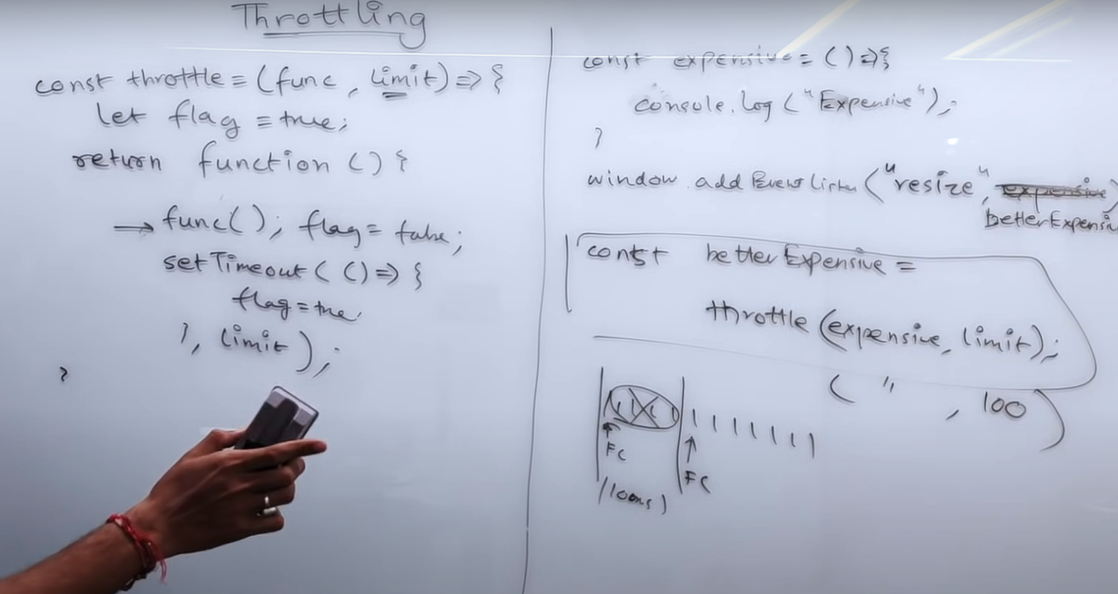 Throttling
const throttle = (func, limit) => {
let flag = true;
return function () {
→ func(); flag = false;
setTimeout ( () => {
flag = true
}, limit);
}
const expensive = () => {
console.log ("Expensive");
}
window.addEventListner ("resize", expensive)
betterExpensiv
const betterExpensive =
throttle (expensive, limit);
( " , 100 )
FC
FC
(100ms)